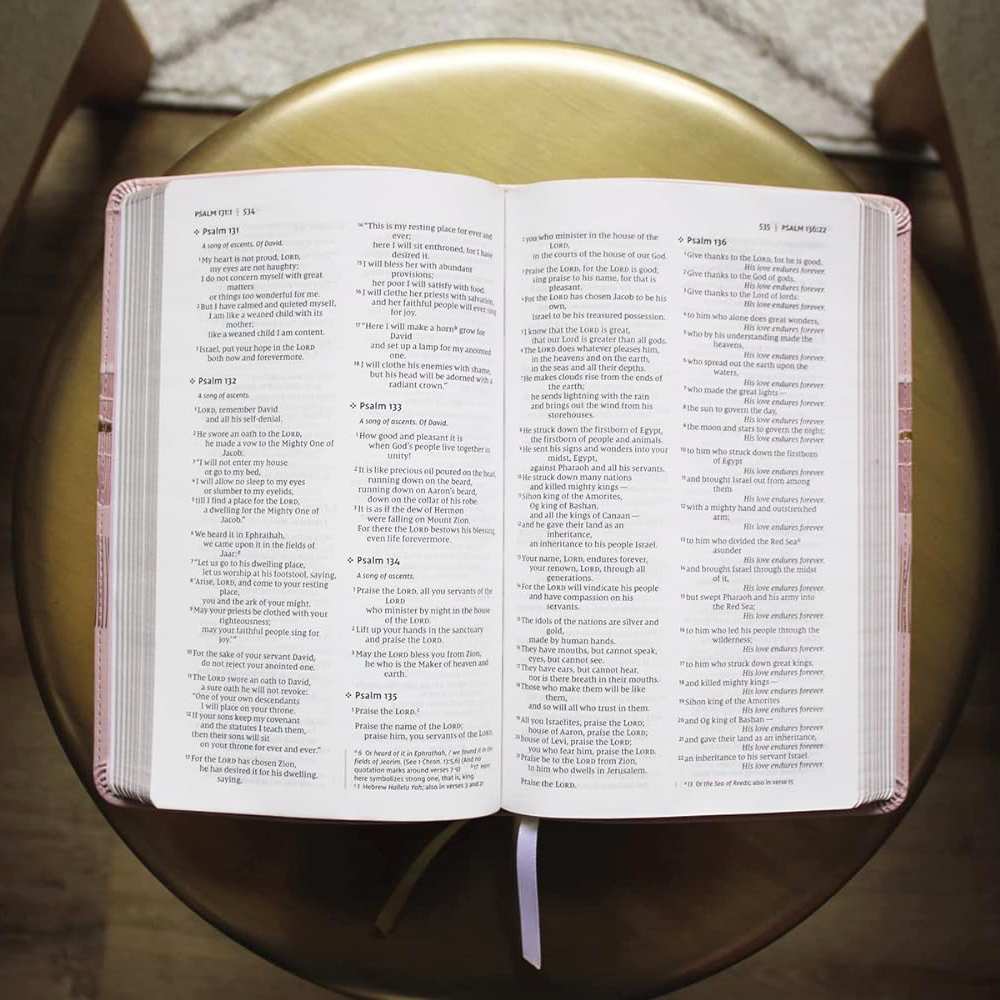 PSALM 131:1 | 534
❖ Psalm 131
A song of ascents. Of David.
1 My heart is not proud, LORD,
my eyes are not haughty;
I do not concern myself with great
matters
or things too wonderful for me.
2 But I have calmed and quieted myself,
I am like a weaned child with its
mother;
like a weaned child I am content.
3 Israel, put your hope in the LORD
both now and forevermore.
❖ Psalm 132
A song of ascents.
1 LORD, remember David
and all his self-denial.
2 He swore an oath to the LORD,
he made a vow to the Mighty One of
Jacob:
3 "I will not enter my house
or go to my bed,
4 I will allow no sleep to my eyes
or slumber to my eyelids,
5 till I find a place for the LORD,
a dwelling for the Mighty One of
Jacob."
6 We heard it in Ephrathah,
we came upon it in the fields of
Jaar:a
7 "Let us go to his dwelling place,
let us worship at his footstool, saying,
8 'Arise, LORD, and come to your resting
place,
you and the ark of your might.
9 May your priests be clothed with your
righteousness;
may your faithful people sing for
joy.'"
10 For the sake of your servant David,
do not reject your anointed one.
11 The LORD swore an oath to David,
a sure oath he will not revoke:
"One of your own descendants
I will place on your throne.
12 If your sons keep my covenant
and the statutes I teach them,
then their sons will sit
on your throne for ever and ever."
13 For the LORD has chosen Zion,
he has desired it for his dwelling,
saying,
14 "This is my resting place for ever and
ever;
here I will sit enthroned, for I have
desired it.
15 I will bless her with abundant
provisions;
her poor I will satisfy with food.
16 I will clothe her priests with salvation,
and her faithful people will ever sing
for joy.
17 "Here I will make a hornb grow for
David
and set up a lamp for my anointed
one.
18 I will clothe his enemies with shame,
but his head will be adorned with a
radiant crown."
❖ Psalm 133
A song of ascents. Of David.
1 How good and pleasant it is
when God's people live together in
unity!
2 It is like precious oil poured on the head,
running down on the beard,
running down on Aaron's beard,
down on the collar of his robe.
3 It is as if the dew of Hermon
were falling on Mount Zion.
For there the LORD bestows his blessing,
even life forevermore.
❖ Psalm 134
A song of ascents.
1 Praise the LORD, all you servants of the
LORD
who minister by night in the house
of the LORD.
2 Lift up your hands in the sanctuary
and praise the LORD.
3 May the LORD bless you from Zion,
he who is the Maker of heaven and
earth.
❖ Psalm 135
1 Praise the LORD.c
Praise the name of the LORD;
praise him, you servants of the LORD,
a 6 Or heard of it in Ephrathah, / we found it in the
fields of Jearim. (See 1 Chron. 13:5,6) (And no
quotation marks around verses 7-9) b 17 Horn
here symbolizes strong one, that is, king.
c 1 Hebrew Hallelu Yah; also in verses 3 and 21
535 | PSALM 136:22
2 you who minister in the house of the
LORD,
in the courts of the house of our God.
3 Praise the LORD, for the LORD is good;
sing praise to his name, for that is
pleasant.
4 For the LORD has chosen Jacob to be his
own,
Israel to be his treasured possession.
5 I know that the LORD is great,
that our Lord is greater than all gods.
6 The LORD does whatever pleases him,
in the heavens and on the earth,
in the seas and all their depths.
7 He makes clouds rise from the ends of
the earth;
he sends lightning with the rain
and brings out the wind from his
storehouses.
8 He struck down the firstborn of Egypt,
the firstborn of people and animals.
9 He sent his signs and wonders into your
midst, Egypt,
against Pharaoh and all his servants.
10 He struck down many nations
and killed mighty kings—
11 Sihon king of the Amorites,
Og king of Bashan,
and all the kings of Canaan—
12 and he gave their land as an
inheritance,
an inheritance to his people Israel.
13 Your name, LORD, endures forever,
your renown, LORD, through all
generations.
14 For the LORD will vindicate his people
and have compassion on his
servants.
15 The idols of the nations are silver and
gold,
made by human hands.
16 They have mouths, but cannot speak,
eyes, but cannot see.
17 They have ears, but cannot hear,
nor is there breath in their mouths.
18 Those who make them will be like
them,
and so will all who trust in them.
19 All you Israelites, praise the LORD;
house of Aaron, praise the LORD;
20 house of Levi, praise the LORD;
you who fear him, praise the LORD.
21 Praise be to the LORD from Zion,
to him who dwells in Jerusalem.
Praise the LORD.
❖ Psalm 136
1 Give thanks to the LORD, for he is good.
His love endures forever.
2 Give thanks to the God of gods.
His love endures forever.
3 Give thanks to the Lord of lords:
His love endures forever.
4 to him who alone does great wonders,
His love endures forever.
5 who by his understanding made the
heavens,
His love endures forever.
6 who spread out the earth upon the
waters,
His love endures forever.
7 who made the great lights—
His love endures forever.
8 the sun to govern the day,
His love endures forever.
9 the moon and stars to govern the night;
His love endures forever.
10 to him who struck down the firstborn
of Egypt
His love endures forever.
11 and brought Israel out from among
them
His love endures forever.
12 with a mighty hand and outstretched
arm;
His love endures forever.
13 to him who divided the Red Seaa
asunder
His love endures forever.
14 and brought Israel through the midst
of it,
His love endures forever.
15 but swept Pharaoh and his army into
the Red Sea;
His love endures forever.
16 to him who led his people through the
wilderness;
His love endures forever.
17 to him who struck down great kings,
His love endures forever.
18 and killed mighty kings—
His love endures forever.
19 Sihon king of the Amorites
His love endures forever.
20 and Og king of Bashan—
His love endures forever.
21 and gave their land as an inheritance,
His love endures forever.
22 an inheritance to his servant Israel.
His love endures forever.
a 13 Or the Sea of Reeds; also in verse 15